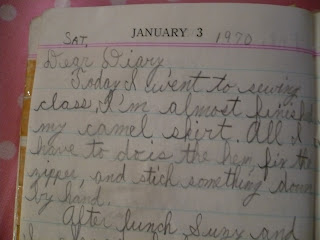 SAT. JANUARY 3 1970
Dear Diary
Today I went to sewing
class. I'm almost finished
my camel skirt. All I
have to do is the hem, fix the
zipper, and stich something down
by hand.
After lunch Suzy and